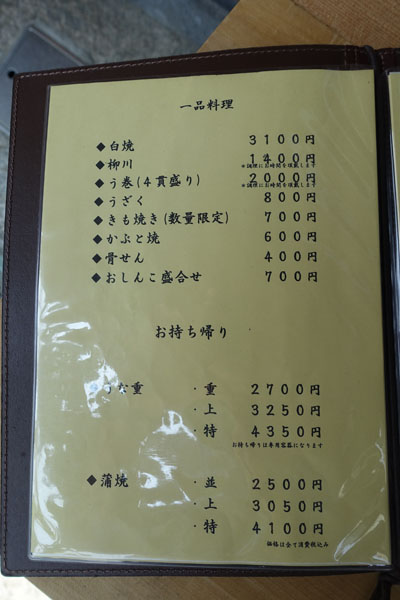 一品料理
◆白焼 3100円
◆柳川 1400円
※調理にお時間を頂戴します
◆う巻(4貫盛り) 2000円
※調理にお時間を頂戴します
◆うざく 800円
◆きも焼き(数量限定) 700円
◆かぶと焼 600円
◆骨せん 400円
◆おしんこ盛合せ 700円
お持ち帰り
うな重 ・重 2700円
・上 3250円
・特 4350円
お持ち帰りは専用容器になります
◆蒲焼 ・並 2500円
・上 3050円
・特 4100円
価格は全て消費税込み